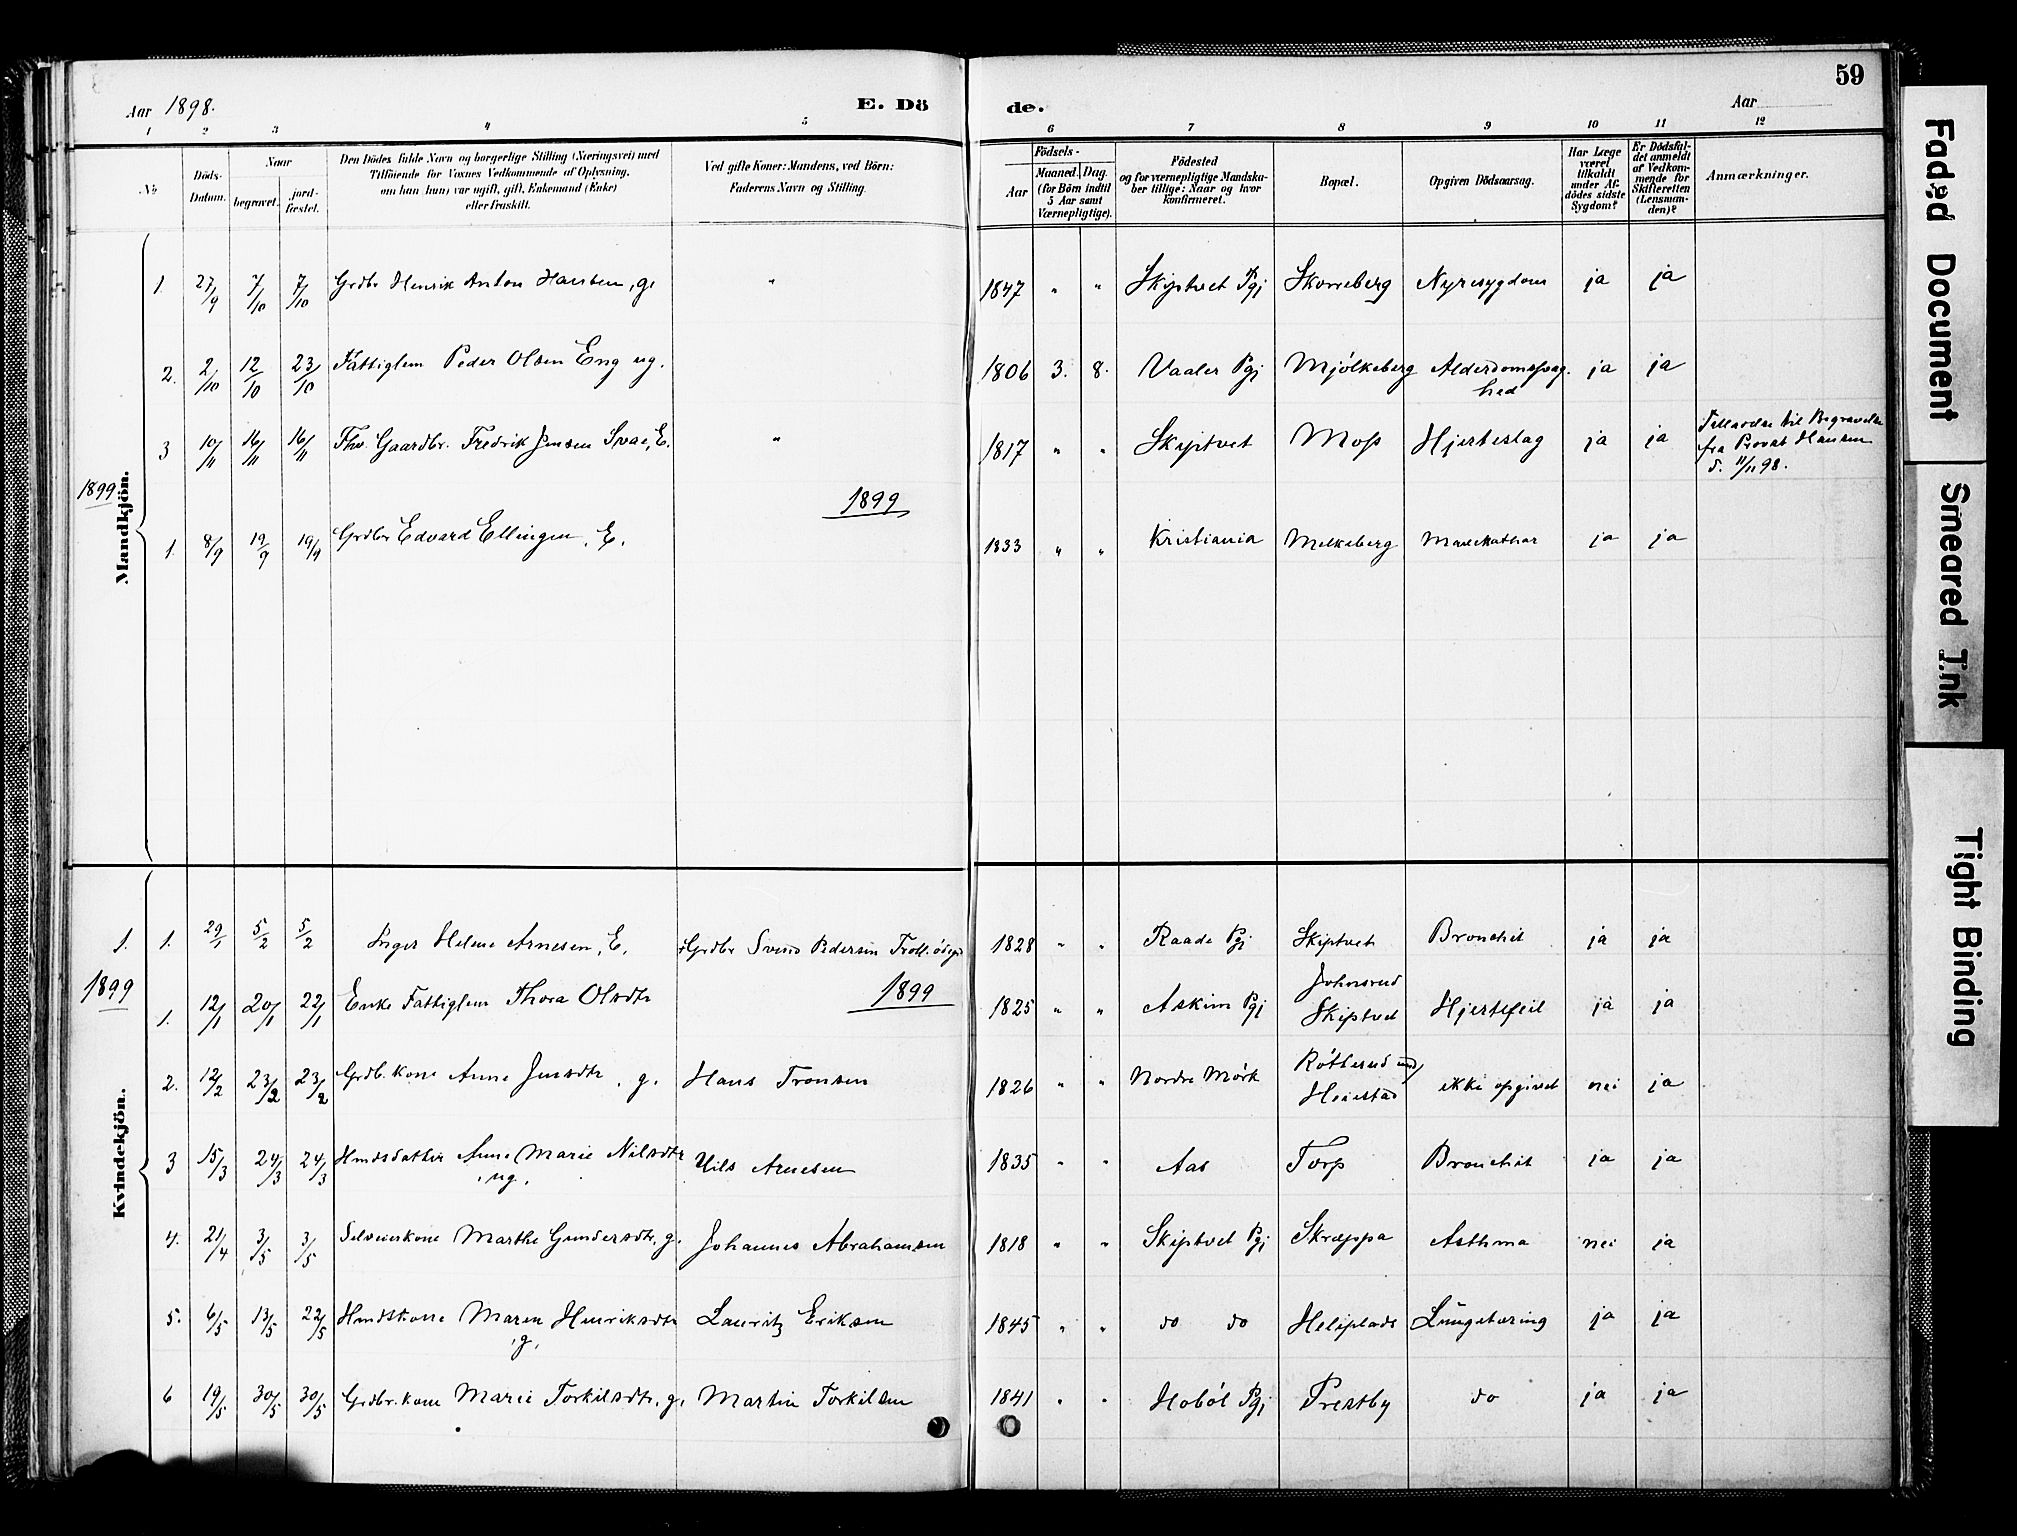 59
Aar 1898. E. Dö de. Aar
1 2 3 4 5 6 7 8 9 10 11 12
No
Döds-Datum.
Naar
begravet. jord-fæstet.
Den Dödes fulde Navn og borgerlige Stilling (Næringsvei) med
Tilföiende for Voxnes Vedkommende af Oplysning,
om han (hun) var ugift, gift, Enkemand (Enke)
eller fraskilt.
Ved gifte Koner: Mandens, ved Börn:
Faderens Navn og Stilling.
Födsels-
Aar Maaned. Dag.
(for Börn indtil
5 Aar samt
Værnepligtige).
Födested
og for værnepligtige Mandska-
ber tillige: Naar og hvor
konfirmeret.
Bopæl.
Opgiven Dödsaarsag.
Har Læge
været
tilkaldt
under Af-
dödes sidste
Sygdom?
Er Dödsfal-
det anmeldt
af Vedkom-
mende for
Skifteretten
(Lensman-
den)?
Anmærkninger.
Mandkjön.
1. 27/9 7/10 7/10 Grdbr Henrik Anton Hansen, g. " 1847 " " Skiptvet Pgj Skorreberg Nyresygdom ja ja
2. 2/10 12/10 23/10 Fattiglem Peder Olsen Eng ug. 1806 3. 8. Vaaler Pgj Mjölkeberg Alderdomssvag-
hed ja ja
3 10/11 16/11 16/11 Fhv. Gaardbr. Fredrik Jensen Svae, E. " 1817 " " Skiptvet Moss Hjerteslag ja ja Tilladelse til Begravelse
fra Provst Hansen
d. 11/11 98.
1899 1899
1. 8/9 19/9 19/9 Grdbr Edvard Ellingsen, E. 1833 " " Kristiania Melkeberg Mavekathar ja ja
Kvindekjön.
1. 1. 29/1 5/2 5/2 Inger Helene Arnesen, E. Grdbr Svend Pedersen 1828 " " Raade Pgj Skiptvet Bronchit ja ja
1899 1899
1. 12/1 20/1 22/1 Enke Fattiglem Thora Olsdtr 1825 " " Askim Pgj Johnsrud
Skiptvet Hjertefeil ja ja
2. 12/2 23/2 23/2 Grdb. kone Anne Jensdtr, g. Hans Tronsen 1826 " " Nordre Mörk Rötterud und/
Heiestad ikke opgivet nei ja
3 15/3 24/3 24/3 Hmdsdatter Anne Marie Nilsdtr
, ug. Nils Arnesen 1835 " " Aas Torp Bronchit ja ja
4. 21/4 3/5 3/5 Selveierkone Marthe Gundersdtr, g. Johannes Abrahamsen 1818 " " Skiptvet Pgj Skræppa Asthma nei ja
5. 6/5 13/5 22/5 Hmdskone Maren Henriksdtr
, g. Lauritz Eriksen 1845 " " do do Heliplads Lungetæring ja ja
6 19/5 30/5 30/5 Grdbr. kone Marie Torkilsdtr, g. Martin Torkilsen 1841 " " Hoböl Pgj Prestby do ja ja
Faded Document
Smeared Ink
Tight Binding